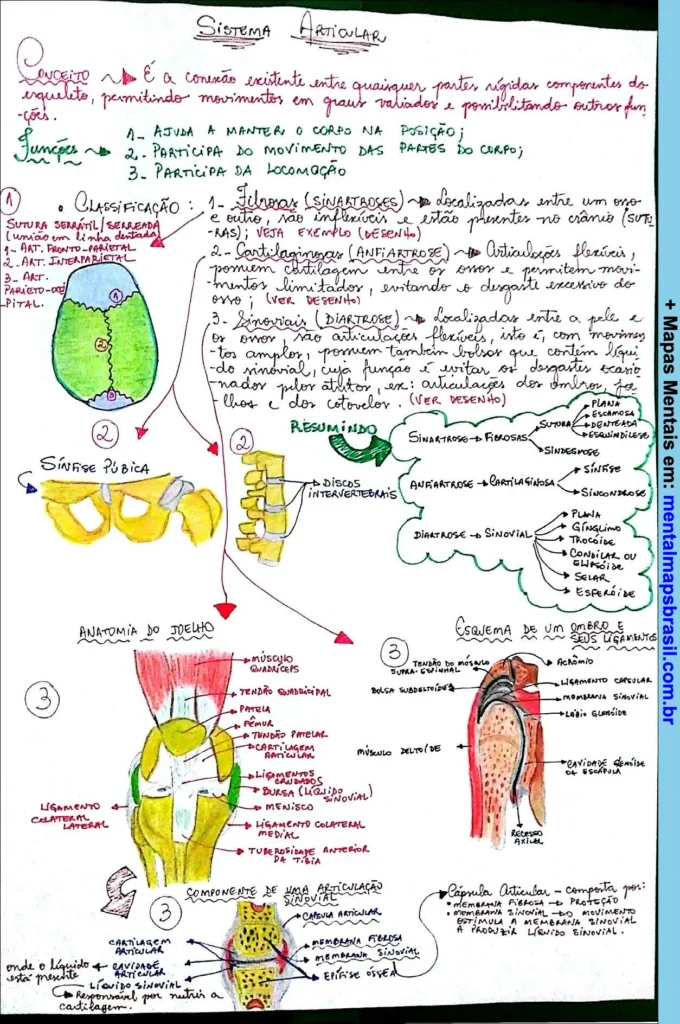 SISTEMA ARTICULAR
CONCEITO → É a conexão existente entre quaisquer partes rígidas componentes do
esqueleto, permitindo movimentos em graus variados e possibilitando outras fun
-ções.
Funções → 1- AJUDA A MANTER O CORPO NA POSIÇÃO;
2- PARTICIPA DO MOVIMENTO DAS PARTES DO CORPO;
3- PARTICIPA DA LOCOMOÇÃO
1
• CLASSIFICAÇÃO:
1- Fibrosas (SINARTROSES) → Localizadas entre um osso
e outro, são inflexíveis e estão presentes no crânio (SUTU-
-RAS); VEJA EXEMPLO (DESENHO)
2- Cartilaginosas (ANFIARTROSE) → Articulações flexíveis,
possuem cartilagem entre os ossos e permitem movi-
-mentos limitados, evitando o desgaste excessivo do
osso; (VER DESENHO)
3- Sinoviais (DIARTROSE) → Localizadas entre a pele e
os ossos, são articulações flexíveis, isto é, com movimen
tos amplos, possuem também bolsas que contém líqui
-do sinovial, cuja função é evitar os desgastes ocasio
-nados pelos atritos, ex: articulações dos ombros, joe
-lhos e dos cotovelos. (VER DESENHO)
SUTURA SERRÁTIL/SERREADA
(união em linha dentada)
1- ART. FRONTO-PARIETAL
2. ART. INTERPARIETAL
3- ART.
PARIETO-OCCI
-PITAL.
1
2
3
2
SÍNFISE PÚBICA
2
DISCOS
INTERVERTEBRAIS
RESUMINDO
SINARTROSE → FIBROSAS
SUTURA
PLANA
ESCAMOSA
DENTEADA
ESQUINDILESE
SINDESMOSE
ANFIARTROSE → CARTILAGINOSA
SÍNFISE
SINCONDROSE
DIARTROSE → SINOVIAL
PLANA
GÍNGLIMO
TROCÓIDE
CONDILAR OU
ELIPSÓIDE
SELAR
ESFERÓIDE
ANATOMIA DO JOELHO
3
MÚSCULO
QUADRÍCEPS
TENDÃO QUADRICIPAL
PATELA
FÊMUR
TENDÃO PATELAR
CARTILAGEM
ARTICULAR
LIGAMENTOS
CRUZADOS
BURSA (LÍQUIDO
SINOVIAL)
MENISCO
LIGAMENTO COLATERAL
MEDIAL
TUBEROSIDADE ANTERIOR
DA TÍBIA
LIGAMENTO
COLATERAL
LATERAL
ESQUEMA DE UM OMBRO E
SEUS LIGAMENTOS
3
TENDÃO DO MÚSCULO
SUPRA-ESPINHAL
BOLSA SUBDELTOÍDE
MÚSCULO DELTOÍDE
ACRÔMIO
LIGAMENTO CAPSULAR
MEMBRANA SINOVIAL
LÁBIO GLENÓIDE
CAVIDADE GLENÓIDE
DA ESCÁPULA
RECESSO
AXILAR
COMPONENTE DE UMA ARTICULAÇÃO
SINOVIAL
3
CÁPSULA ARTICULAR
MEMBRANA FIBROSA
MEMBRANA SINOVIAL
EPÍFISE ÓSSEA
CARTILAGEM
ARTICULAR
onde o líquido ← CAVIDADE
está presente ARTICULAR
LÍQUIDO SINOVIAL
→ Responsável por nutrir a
cartilagem.
Cápsula Articular - composta por:
• MEMBRANA FIBROSA → PROTEÇÃO
• MEMBRANA SINOVIAL → DO MOVIMENTO
ESTIMULA A MEMBRANA SINOVIAL
A PRODUZIR LÍQUIDO SINOVIAL.
+ Mapas Mentais em: mentalmapsbrasil.com.br